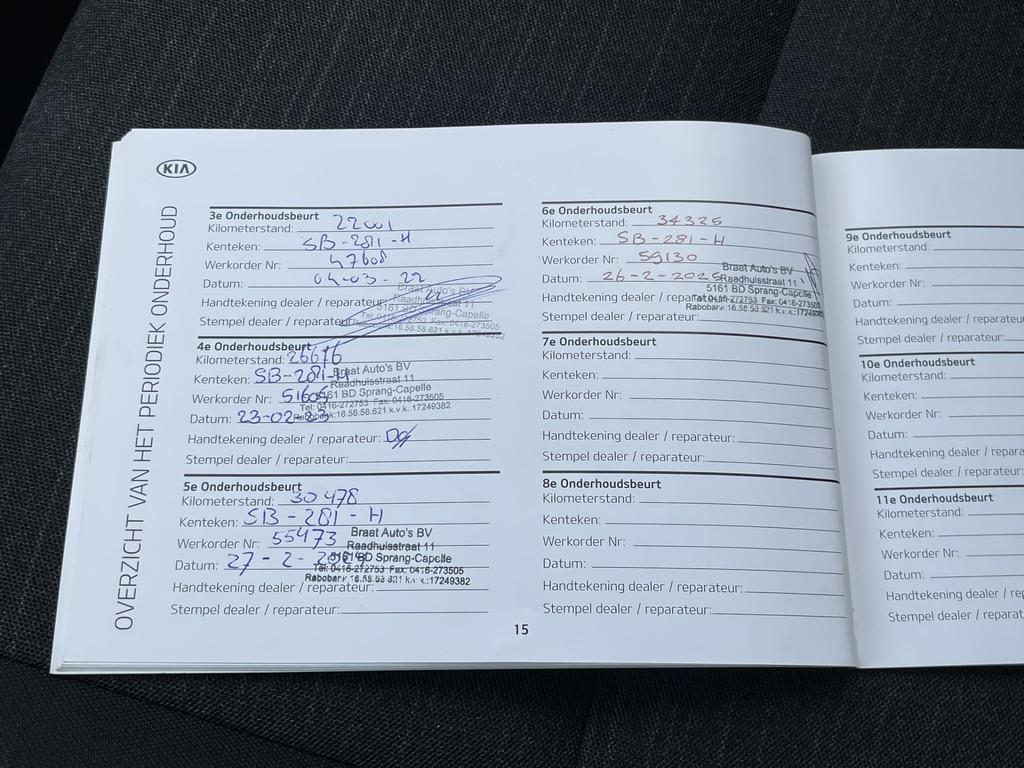 KIA
OVERZICHT VAN HET PERIODIEK ONDERHOUD
3e Onderhoudsbeurt
Kilometerstand: 22001
Kenteken: SB-281-H
Werkorder Nr: 47608
Datum: 04-03-22
Handtekening dealer / reparateur:
Braat Auto's BV
Raadhuisstraat 11
5161 BD Sprang-Capelle
Stempel dealer / reparateur:
Tel: 0416-272753 Fax: 0416-273505
Rabobank:16.58.58.621 k.v.k.:17249382
4e Onderhoudsbeurt
Kilometerstand: 26676
Kenteken: SB-281-H
Braat Auto's BV
Raadhuisstraat 11
Werkorder Nr:
5161 BD Sprang-Capelle
Tel: 0416-272753 Fax: 0416-273505
Datum: 23-02-23
Rabobank:16.58.58.621 k.v.k.:17249382
Handtekening dealer / reparateur:
Stempel dealer / reparateur:
5e Onderhoudsbeurt
Kilometerstand: 30478
Kenteken: SB-281-H
Werkorder Nr: 55473
Braat Auto's BV
Raadhuisstraat 11
Datum: 27-2-
5161 BD Sprang-Capelle
Tel: 0416-272753 Fax: 0416-273505
Rabobank: 16.58.58.621 k.v.k.:17249382
Handtekening dealer / reparateur:
Stempel dealer / reparateur:
6e Onderhoudsbeurt
Kilometerstand: 34325
Kenteken: SB-281-H
Werkorder Nr: 59130
Datum: 26-2-2025
Braat Auto's BV
Raadhuisstraat 11
5161 BD Sprang-Capelle
Handtekening dealer / reparateur:
Tel: 0416-272753 Fax: 0416-273505
Rabobank: 16.58.58.621 k.v.k.:17249382
Stempel dealer / reparateur:
7e Onderhoudsbeurt
Kilometerstand:
Kenteken:
Werkorder Nr:
Datum:
Handtekening dealer / reparateur:
Stempel dealer / reparateur:
8e Onderhoudsbeurt
Kilometerstand:
Kenteken:
Werkorder Nr:
Datum:
Handtekening dealer / reparateur:
Stempel dealer / reparateur:
15
9e Onderhoudsbeurt
Kilometerstand:
Kenteken:
Werkorder Nr:
Datum:
Handtekening dealer / reparateu
Stempel dealer / reparateur:
10e Onderhoudsbeurt
Kilometerstand:
Kenteken:
Werkorder Nr:
Datum:
Handtekening dealer / repara
Stempel dealer / reparateur:
11e Onderhoudsbeurt
Kilometerstand:
Kenteken:
Werkorder Nr:
Datum:
Handtekening dealer / re
Stempel dealer / reparat